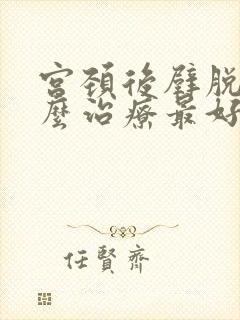 宮頚後壁脱
麼治療最好
任賢齊